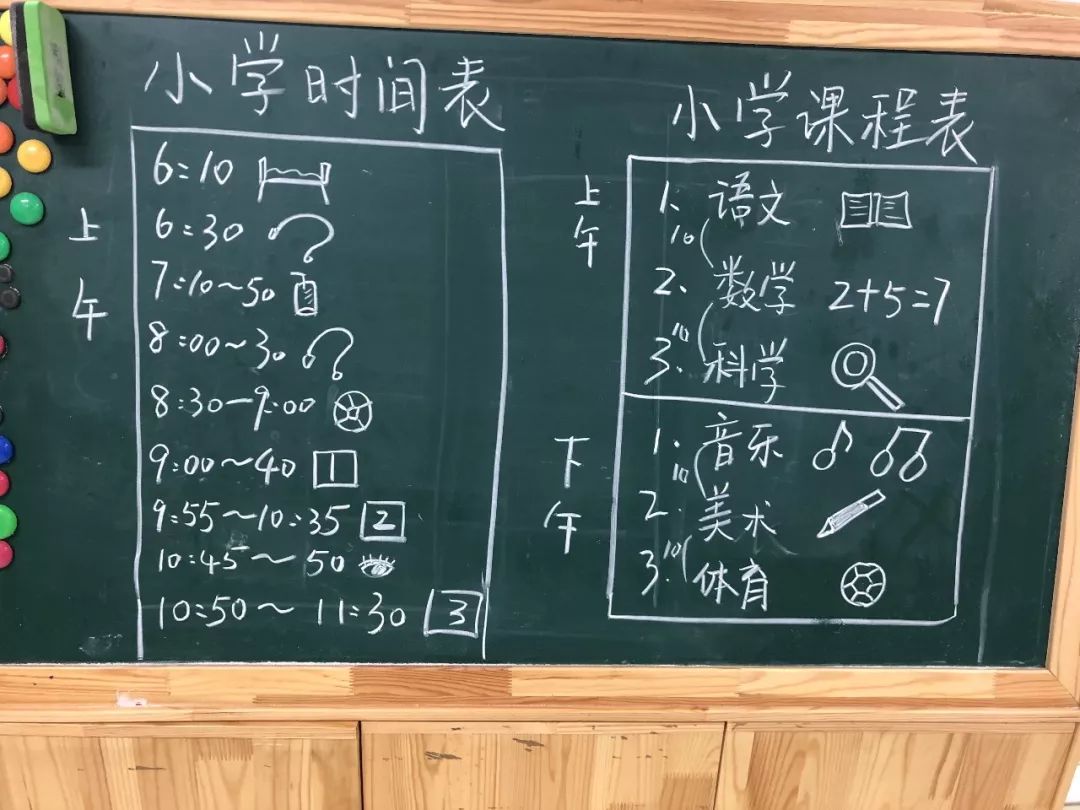 小学时间表
上午
6:10
6:30
7:10~50
8:00~30
8:30-9:00
9:00~40 1
9:55~10:35 2
10:45~50
10:50~11:30 3
小学课程表
上午
1、语文
10
2、数学 2+5=7
10
3、科学
下午
1、音乐
10
2、美术
10
3、体育